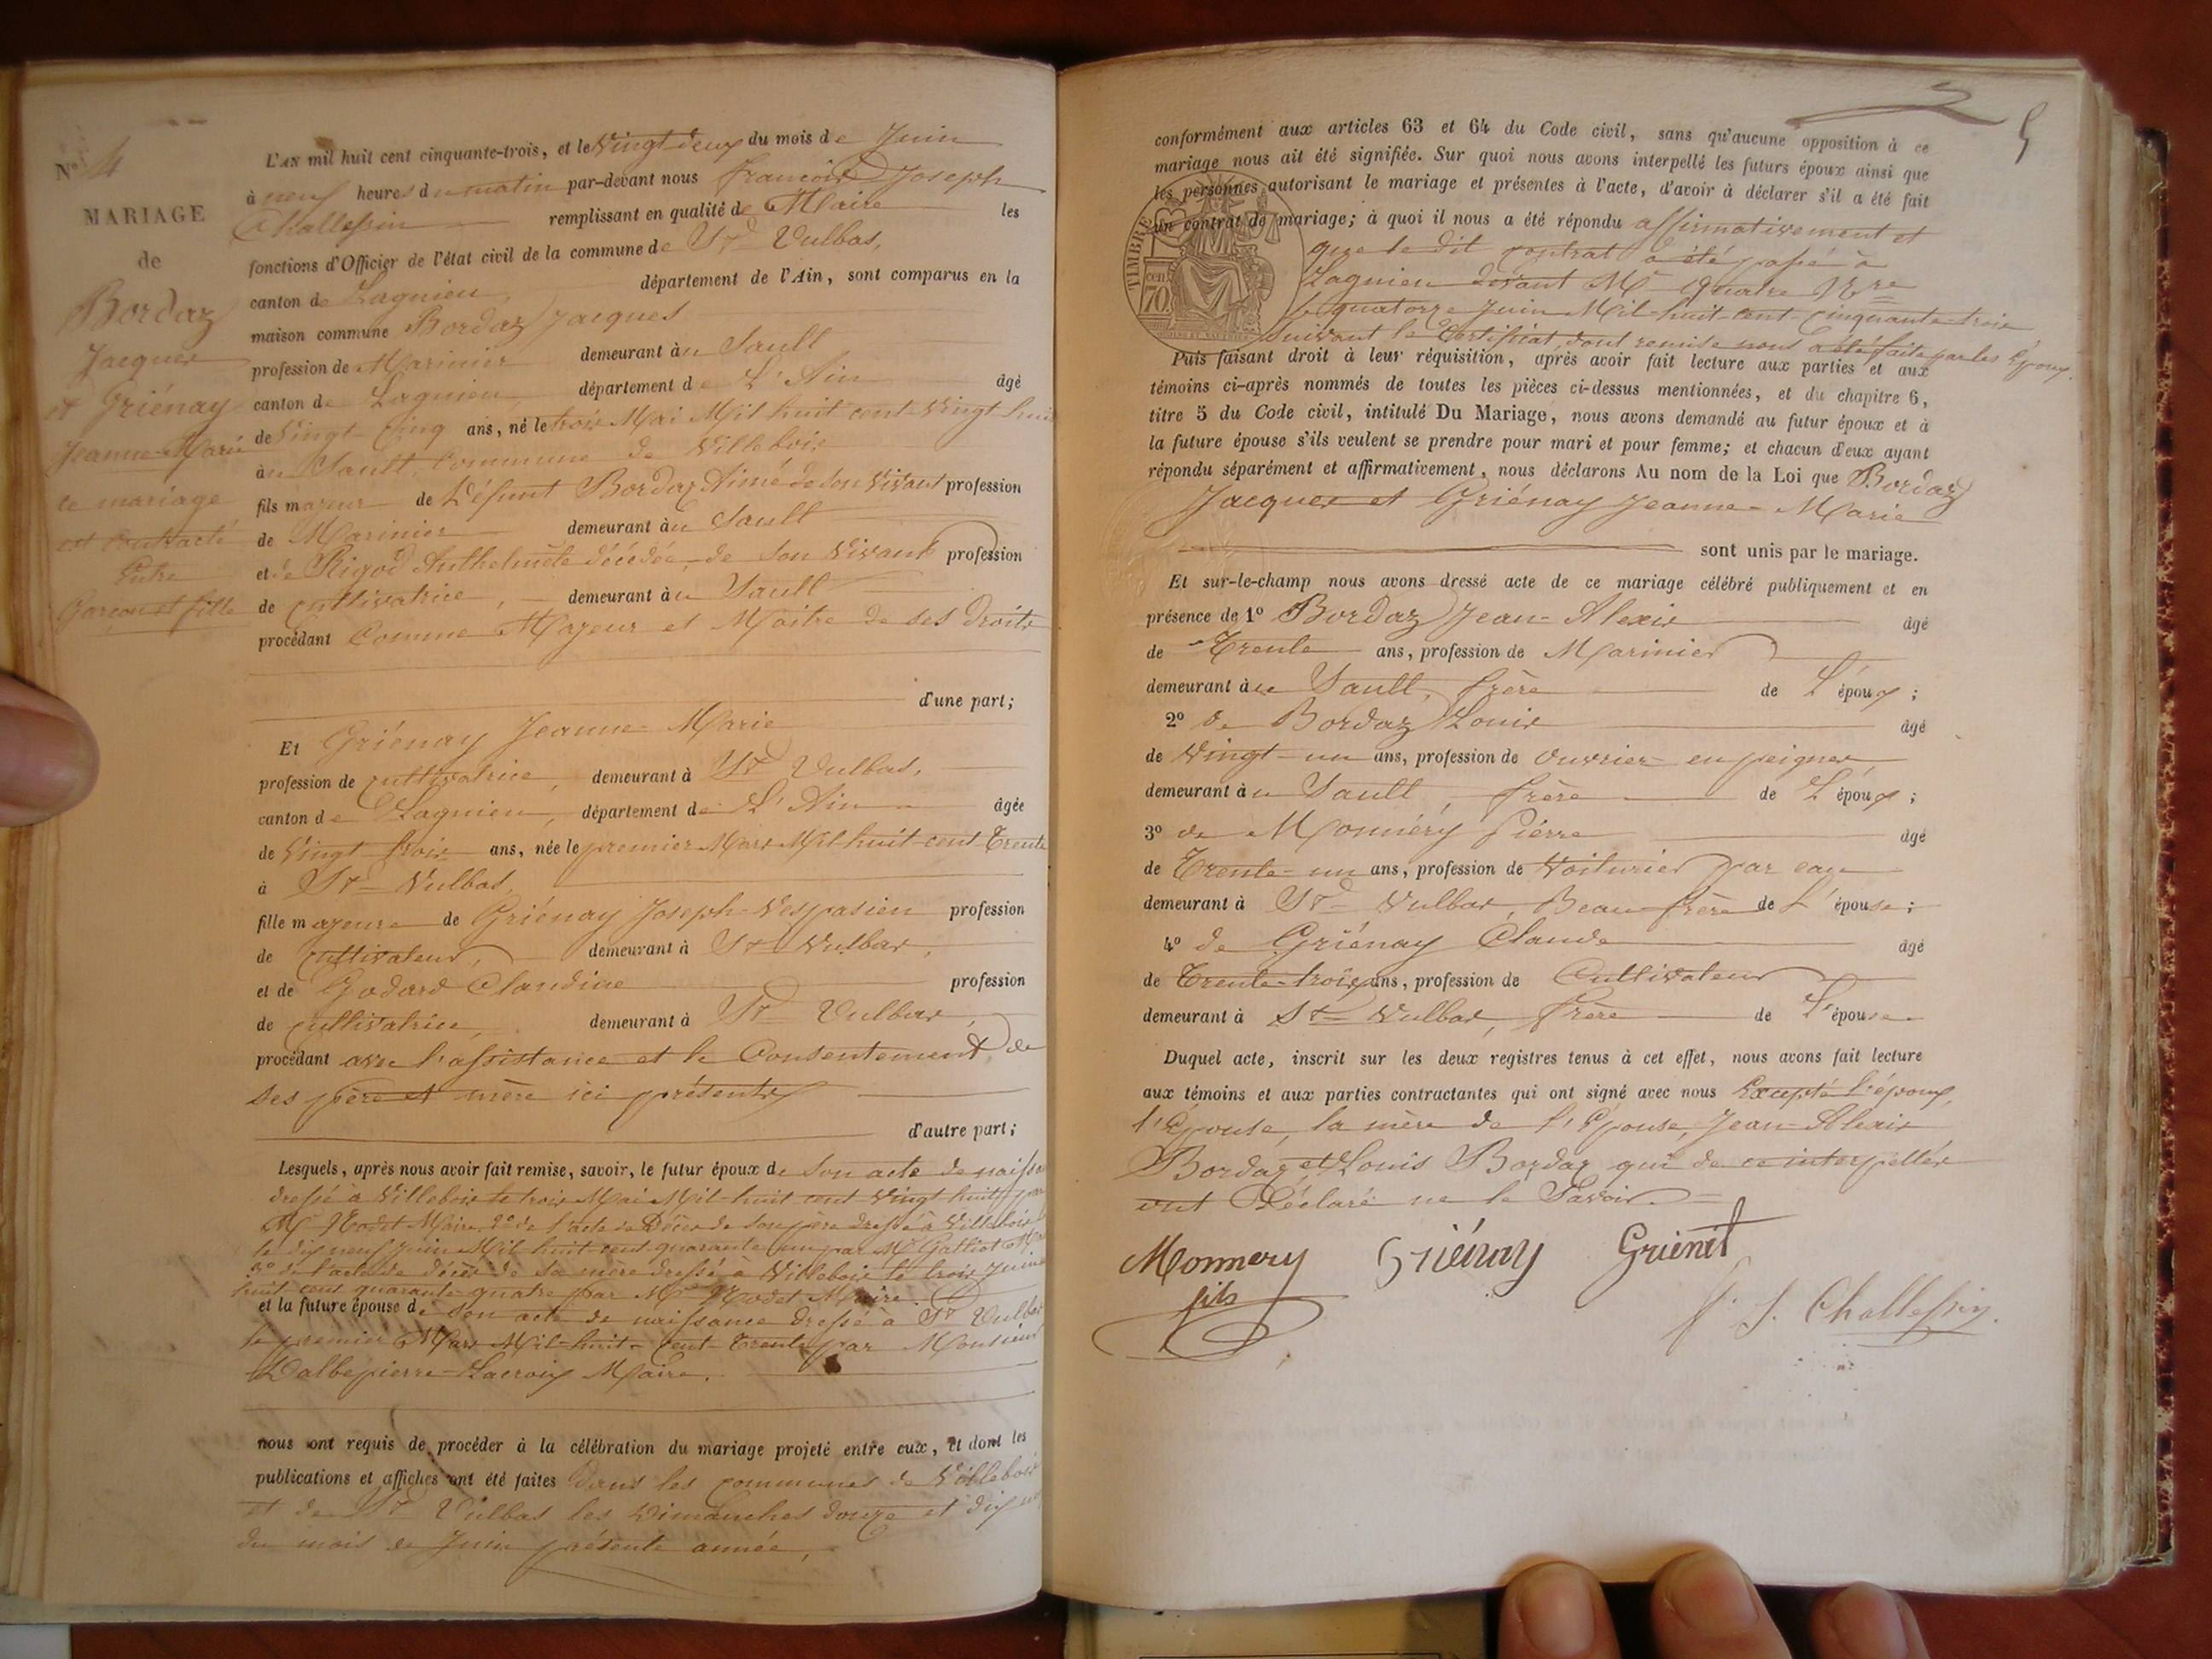 N° 4
MARIAGE
de
Bordaz
Jacques
et Griénay
Jeanne-Marie
ce mariage
est contracté
Entre
Garçon et fille
L'AN mil huit cent cinquante-trois, et le Vingt deux du mois de Juin
à neuf heures du matin par-devant nous François Joseph
Challessin remplissant en qualité de Maire les
fonctions d'Officier de l'état civil de la commune de St Vulbas,
canton de Lagnieu, département de l'Ain, sont comparus en la
maison commune Bordaz Jacques
profession de Marinier demeurant àu Sault
canton de Lagnieu, département de L'Ain âgé
de Vingt-Cinq ans, né le trois Mai Mil huit cent Vingt huit
àu Sault, Commune de Villebois
fils majeur de Défunt Bordaz Aimé de son Vivant profession
de Marinier demeurant àu Sault
et de Rigod Anthelmète décédée, de son Vivant profession
de cultivatrice, demeurant àu Sault
procédant Comme Majeur et Maitre de ses droits
d'une part;
Et Griénay Jeanne-Marie
profession de cultivatrice, demeurant à St Vulbas,
canton de Lagnieu, département de L'Ain âgée
de Vingt trois ans, née le premier Mars Mil huit-cent-Trente
à St Vulbas,
fille majeure de Griénay Joseph-Vespasien profession
de cultivateur, demeurant à St Vulbas,
et de Godard Claudine profession
de cultivatrice, demeurant à St Vulbas,
procédant avec l'assistance et le Consentement, de
ses père et mère ici présents
d'autre part;
Lesquels, après nous avoir fait remise, savoir, le futur époux de son acte de
dressé à Villebois le trois Mai Mil-huit cent Vingt huit
Mr Maire, 2° de l'acte de Décès de son père dressé à Villebois
le dix neuf Juin Mil huit-cent quarante un par Mr Galliot
3° de l'acte de décès de sa mère dressé à Villebois le trois Juin
huit cent quarante-quatre par Mr Maire.
et la future épouse de son acte de naissance dressé à St Vulbas
le premier Mars Mil-huit-cent-Trente par Monsieur
Dalbepierre-Lacroix Maire.
nous ont requis de procéder à la célébration du mariage projeté entre eux, et dont les
publications et affiches ont été faites Dans les communes de Villebois
et de St Vulbas les Dimanches douze et dix
du mois de Juin présente année,
5
conformément aux articles 63 et 64 du Code civil, sans qu'aucune opposition à ce
mariage nous ait été signifiée. Sur quoi nous avons interpellé les futurs époux ainsi que
les personnes autorisant le mariage et présentes à l'acte, d'avoir à déclarer s'il a été fait
un contrat de mariage; à quoi il nous a été répondu affirmativement et
que le dit contrat a été passé à
Lagnieu devant Me Quatre Nre
le quatorze Juin Mil-huit-cent-cinquante-trois
Suivant le Certificat, dont remise nous a été faite par les Époux.
TIMBRE
cen
70.
Puis faisant droit à leur réquisition, après avoir fait lecture aux parties et aux
témoins ci-après nommés de toutes les pièces ci-dessus mentionnées, et du chapitre 6,
titre 5 du Code civil, intitulé Du Mariage, nous avons demandé au futur époux et à
la future épouse s'ils veulent se prendre pour mari et pour femme; et chacun d'eux ayant
répondu séparément et affirmativement, nous déclarons Au nom de la Loi que Bordaz
Jacques et Griénay Jeanne-Marie
sont unis par le mariage.
Et sur-le-champ nous avons dressé acte de ce mariage célébré publiquement et en
présence de 1° Bordaz Jean-Alexis âgé
de Trente ans, profession de Marinier
demeurant àu Sault, frère de L'époux;
2° de Bordaz Louis âgé
de Vingt-un ans, profession de Ouvrier en peignes
demeurant àu Sault, frère de L'époux;
3° de Monnéry Pierre âgé
de Trente-un ans, profession de Voiturier par eau
demeurant à St Vulbas, Beau-frère de L'épouse;
4° de Griénay Claude âgé
de Trente-trois ans, profession de Cultivateur
demeurant à St Vulbas, frère de L'épouse
Duquel acte, inscrit sur les deux registres tenus à cet effet, nous avons fait lecture
aux témoins et aux parties contractantes qui ont signé avec nous Excepté l'époux,
l'Épouse, la mère de l'Épouse, Jean-Alexis
Bordaz et Louis Bordaz qui de ce interpellés
ont Déclaré ne le Savoir.
Monnery Griénay Grienet
fils
f. J. Challessin.